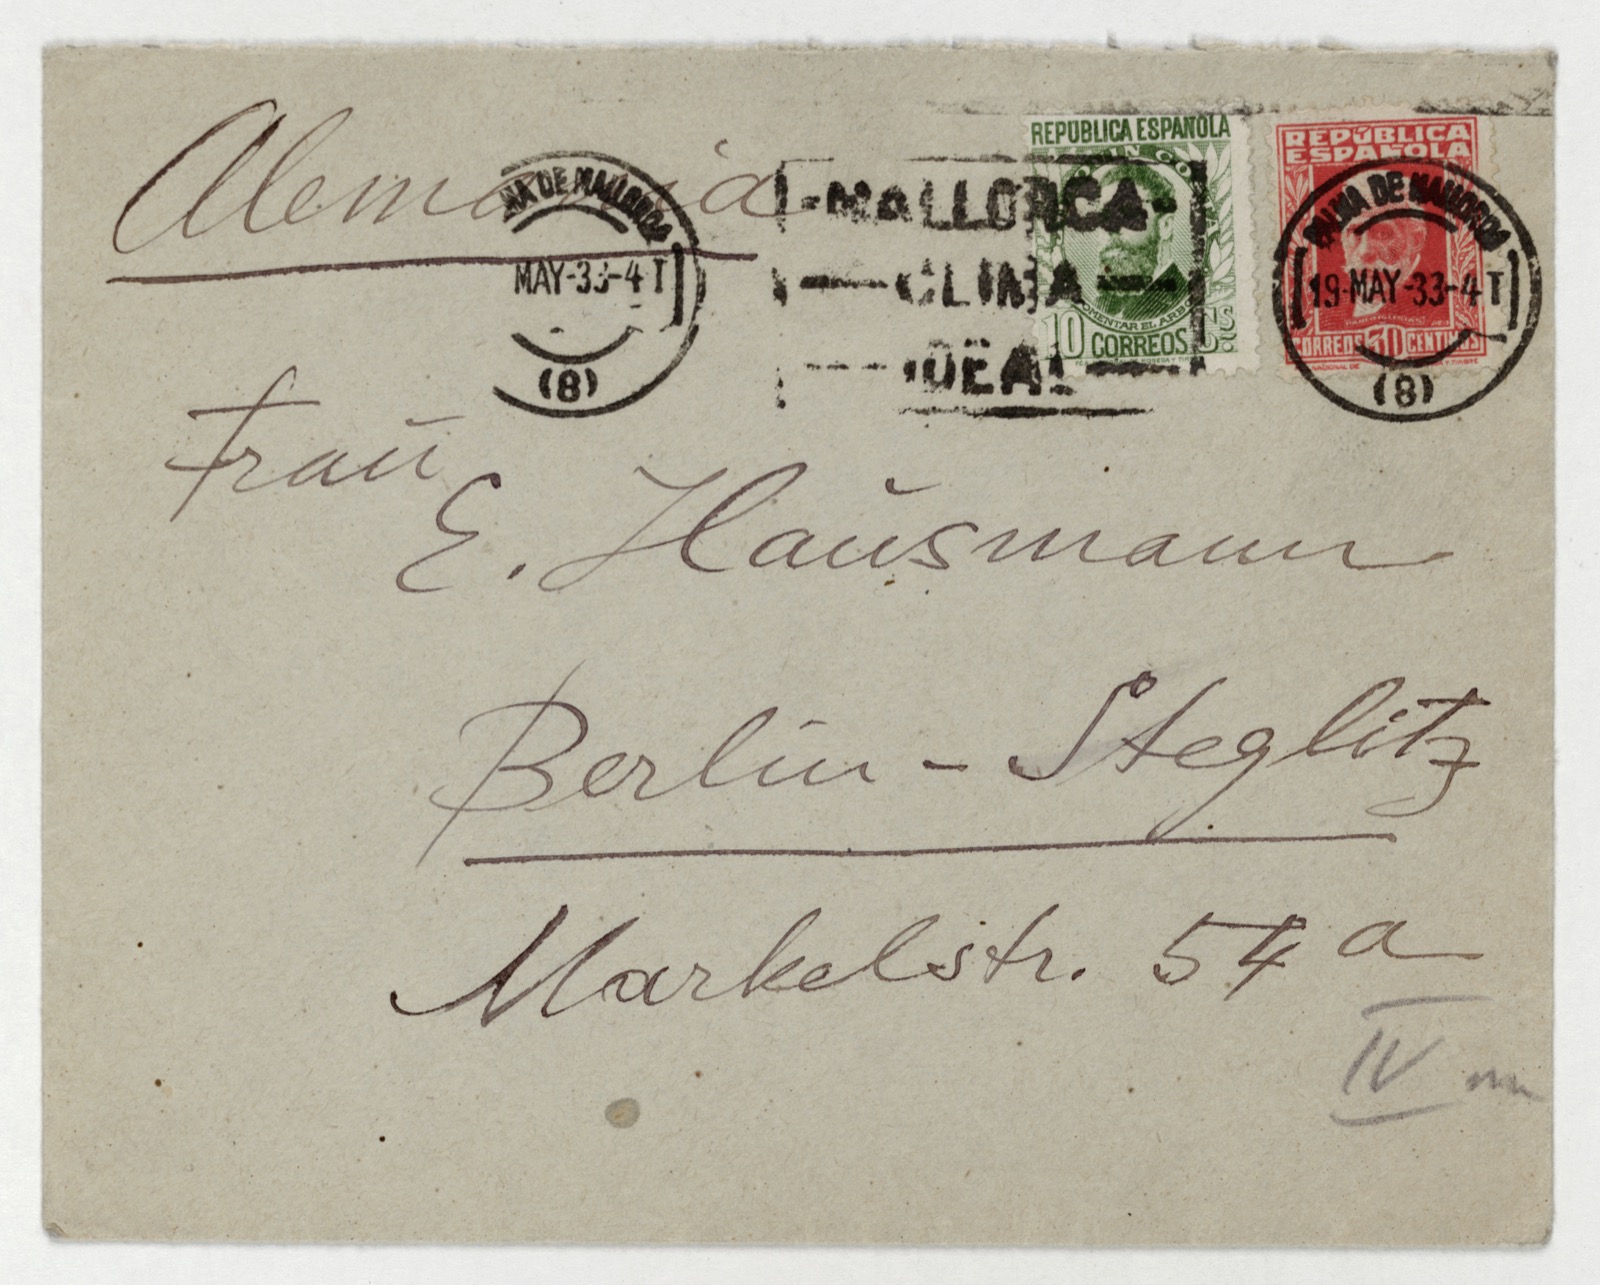 Alemania
MA DE MALLORCA
MAY-33-4T
(8)
-MALLORCA-
CLIMA
IDEAL
REPUBLICA ESPAÑOLA
JOAQUIN COSTA
FOMENTAR EL ARBOL
10 CORREOS CTS
REPÚBLICA
ESPAÑOLA
CORREOS 30 CENTIMOS
PALMA DE MALLORCA
19-MAY-33-4T
(8)
Frau
E. Hausmann
Berlin-Steglitz
Markelstr. 54 a
IV